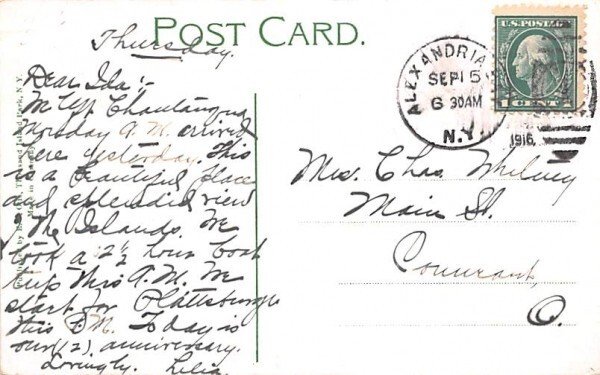 POST CARD.
Thursday.
Dear Ida:-
We left Chautauqua
Monday A.M. arrived
here yesterday. This
is a beautiful place
and splendid view
The Islands. We
took a 2½ hour boat
trip this A.M. We
start for Plattsburgh
this P.M. Today is
our (2) anniversary.
Lovingly. Lelia
Thousand Island Park, N.Y.
Made in Germany
ALEXANDRIA
SEP 15
6 30AM
N.Y.
1916
U.S. POSTAGE
1 CENT 1
Mrs. Chas. Whitney
Main St.
Conneaut,
O.